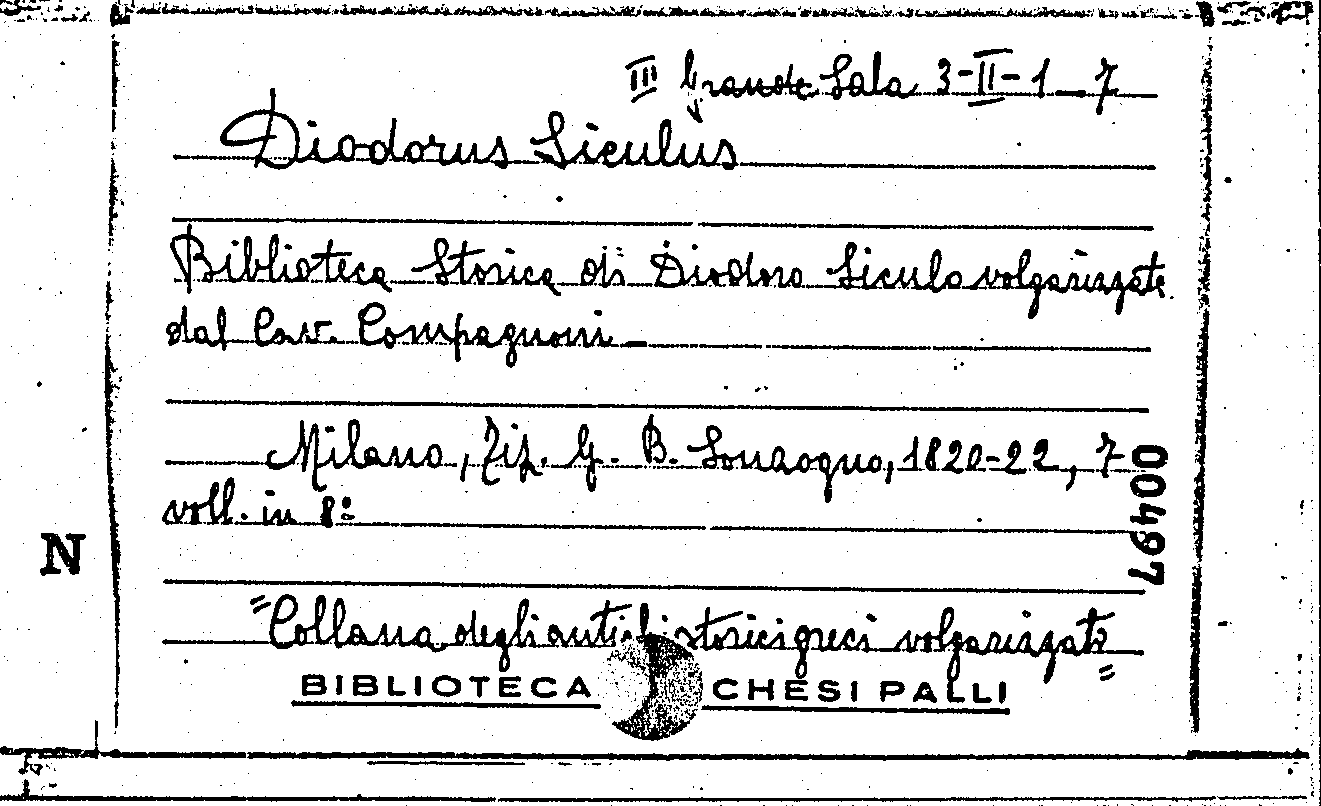 III Grande Sala 3-II-1-7
Diodorus Siculus
Biblioteca Storica di Diodoro Siculo volgarizzata
dal Cav. Compagnoni -
Milano, Tip. G. B. Sonzogno, 1820-22, 7
voll. in 8º
00497
N
"Collana degli antichi storici greci volgarizzati"
BIBLIOTECA CHESI PALLI